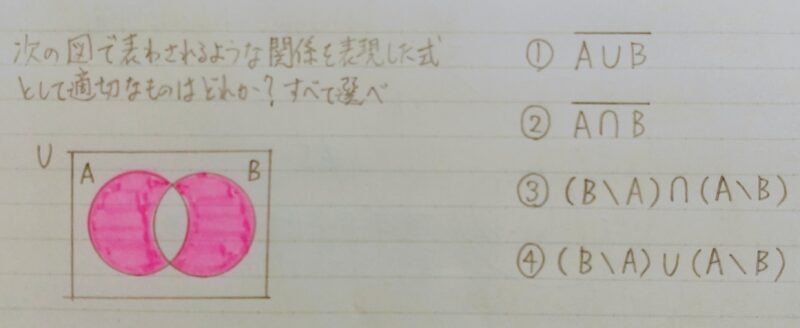 次の図で表わされるような関係を表現した式
として適切なものはどれか?すべて選べ
U
A
B
① \overline{A∪B}
② \overline{A∩B}
③ (B\A)∩(A\B)
④ (B\A)∪(A\B)